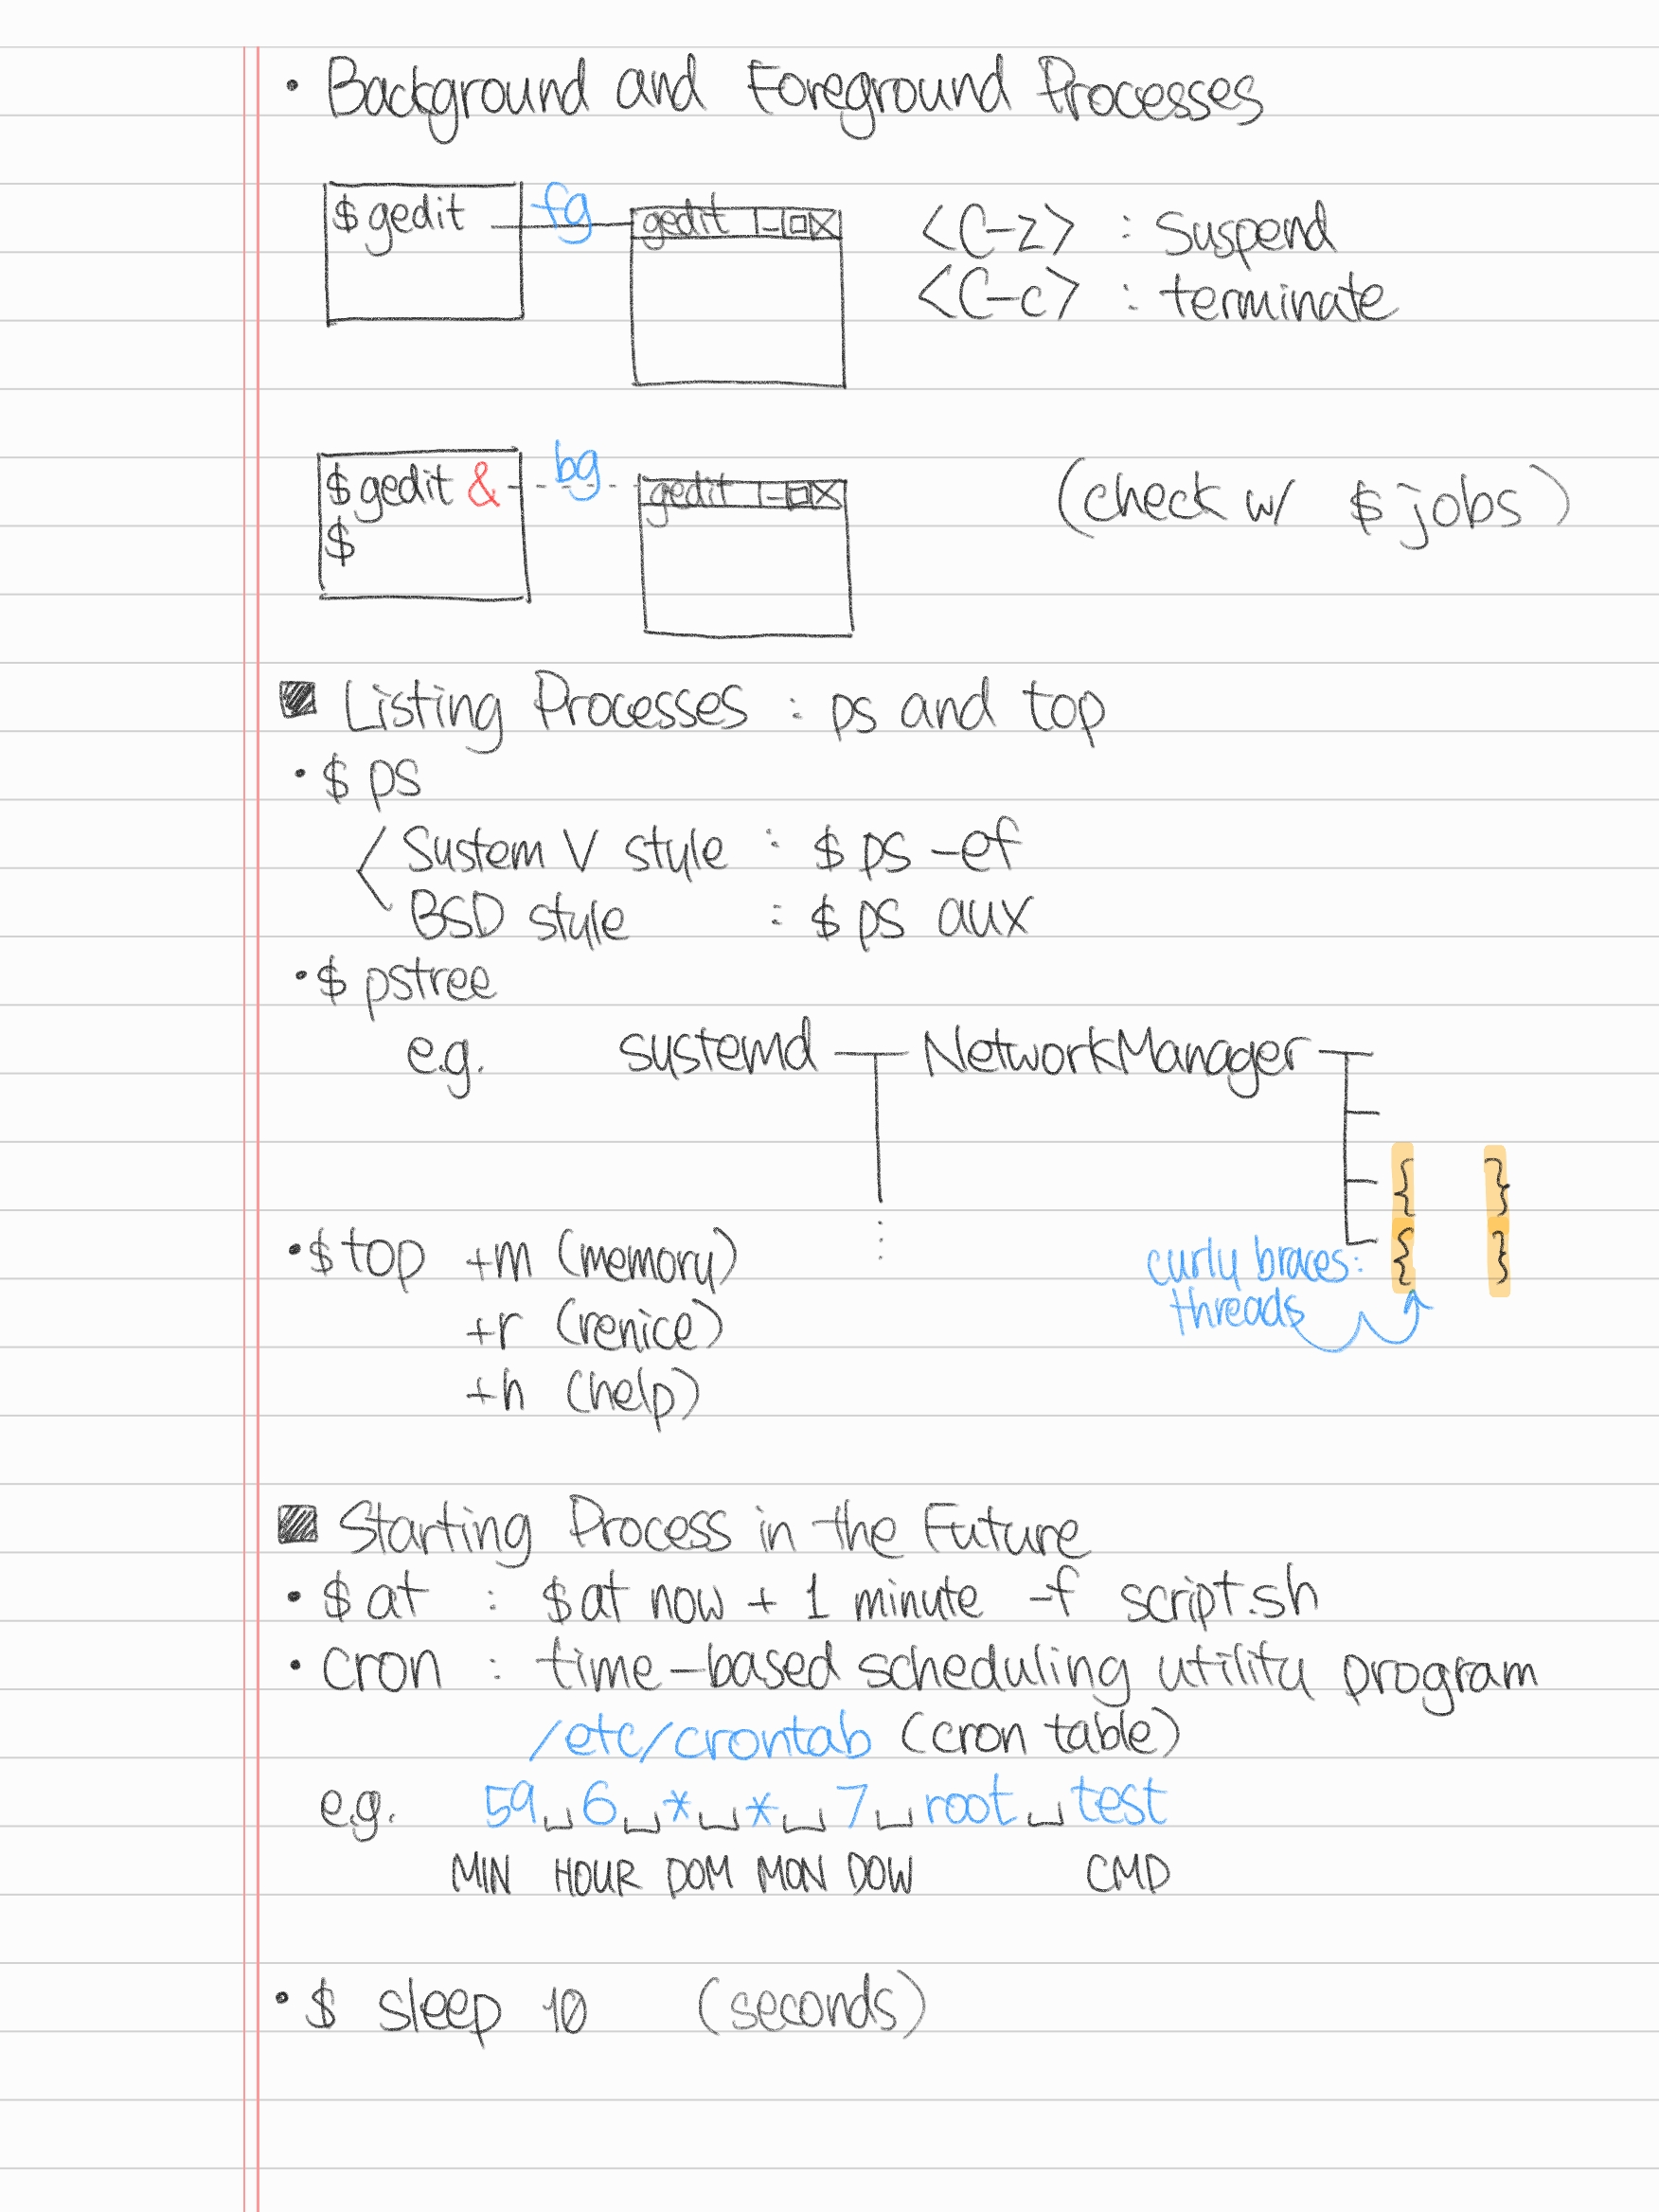 • Background and Foreground Processes
$ gedit fg gedit
<C-z> : Suspend
<C-c> : terminate
$ gedit & bg gedit
$
(check w/ $ jobs)
Listing Processes : ps and top
• $ ps
System V style : $ ps -ef
BSD style : $ ps aux
• $ pstree
e.g. systemd NetworkManager
{ }
{ }
curly braces:
threads
• $ top +m (memory)
+r (renice)
+h (help)
Starting Process in the Future
• $ at : $ at now + 1 minute -f script.sh
• cron : time-based scheduling utility program
/etc/crontab (cron table)
e.g. 59␣6␣*␣*␣7␣root␣test
MIN HOUR DOM MON DOW CMD
• $ sleep 10 (seconds)